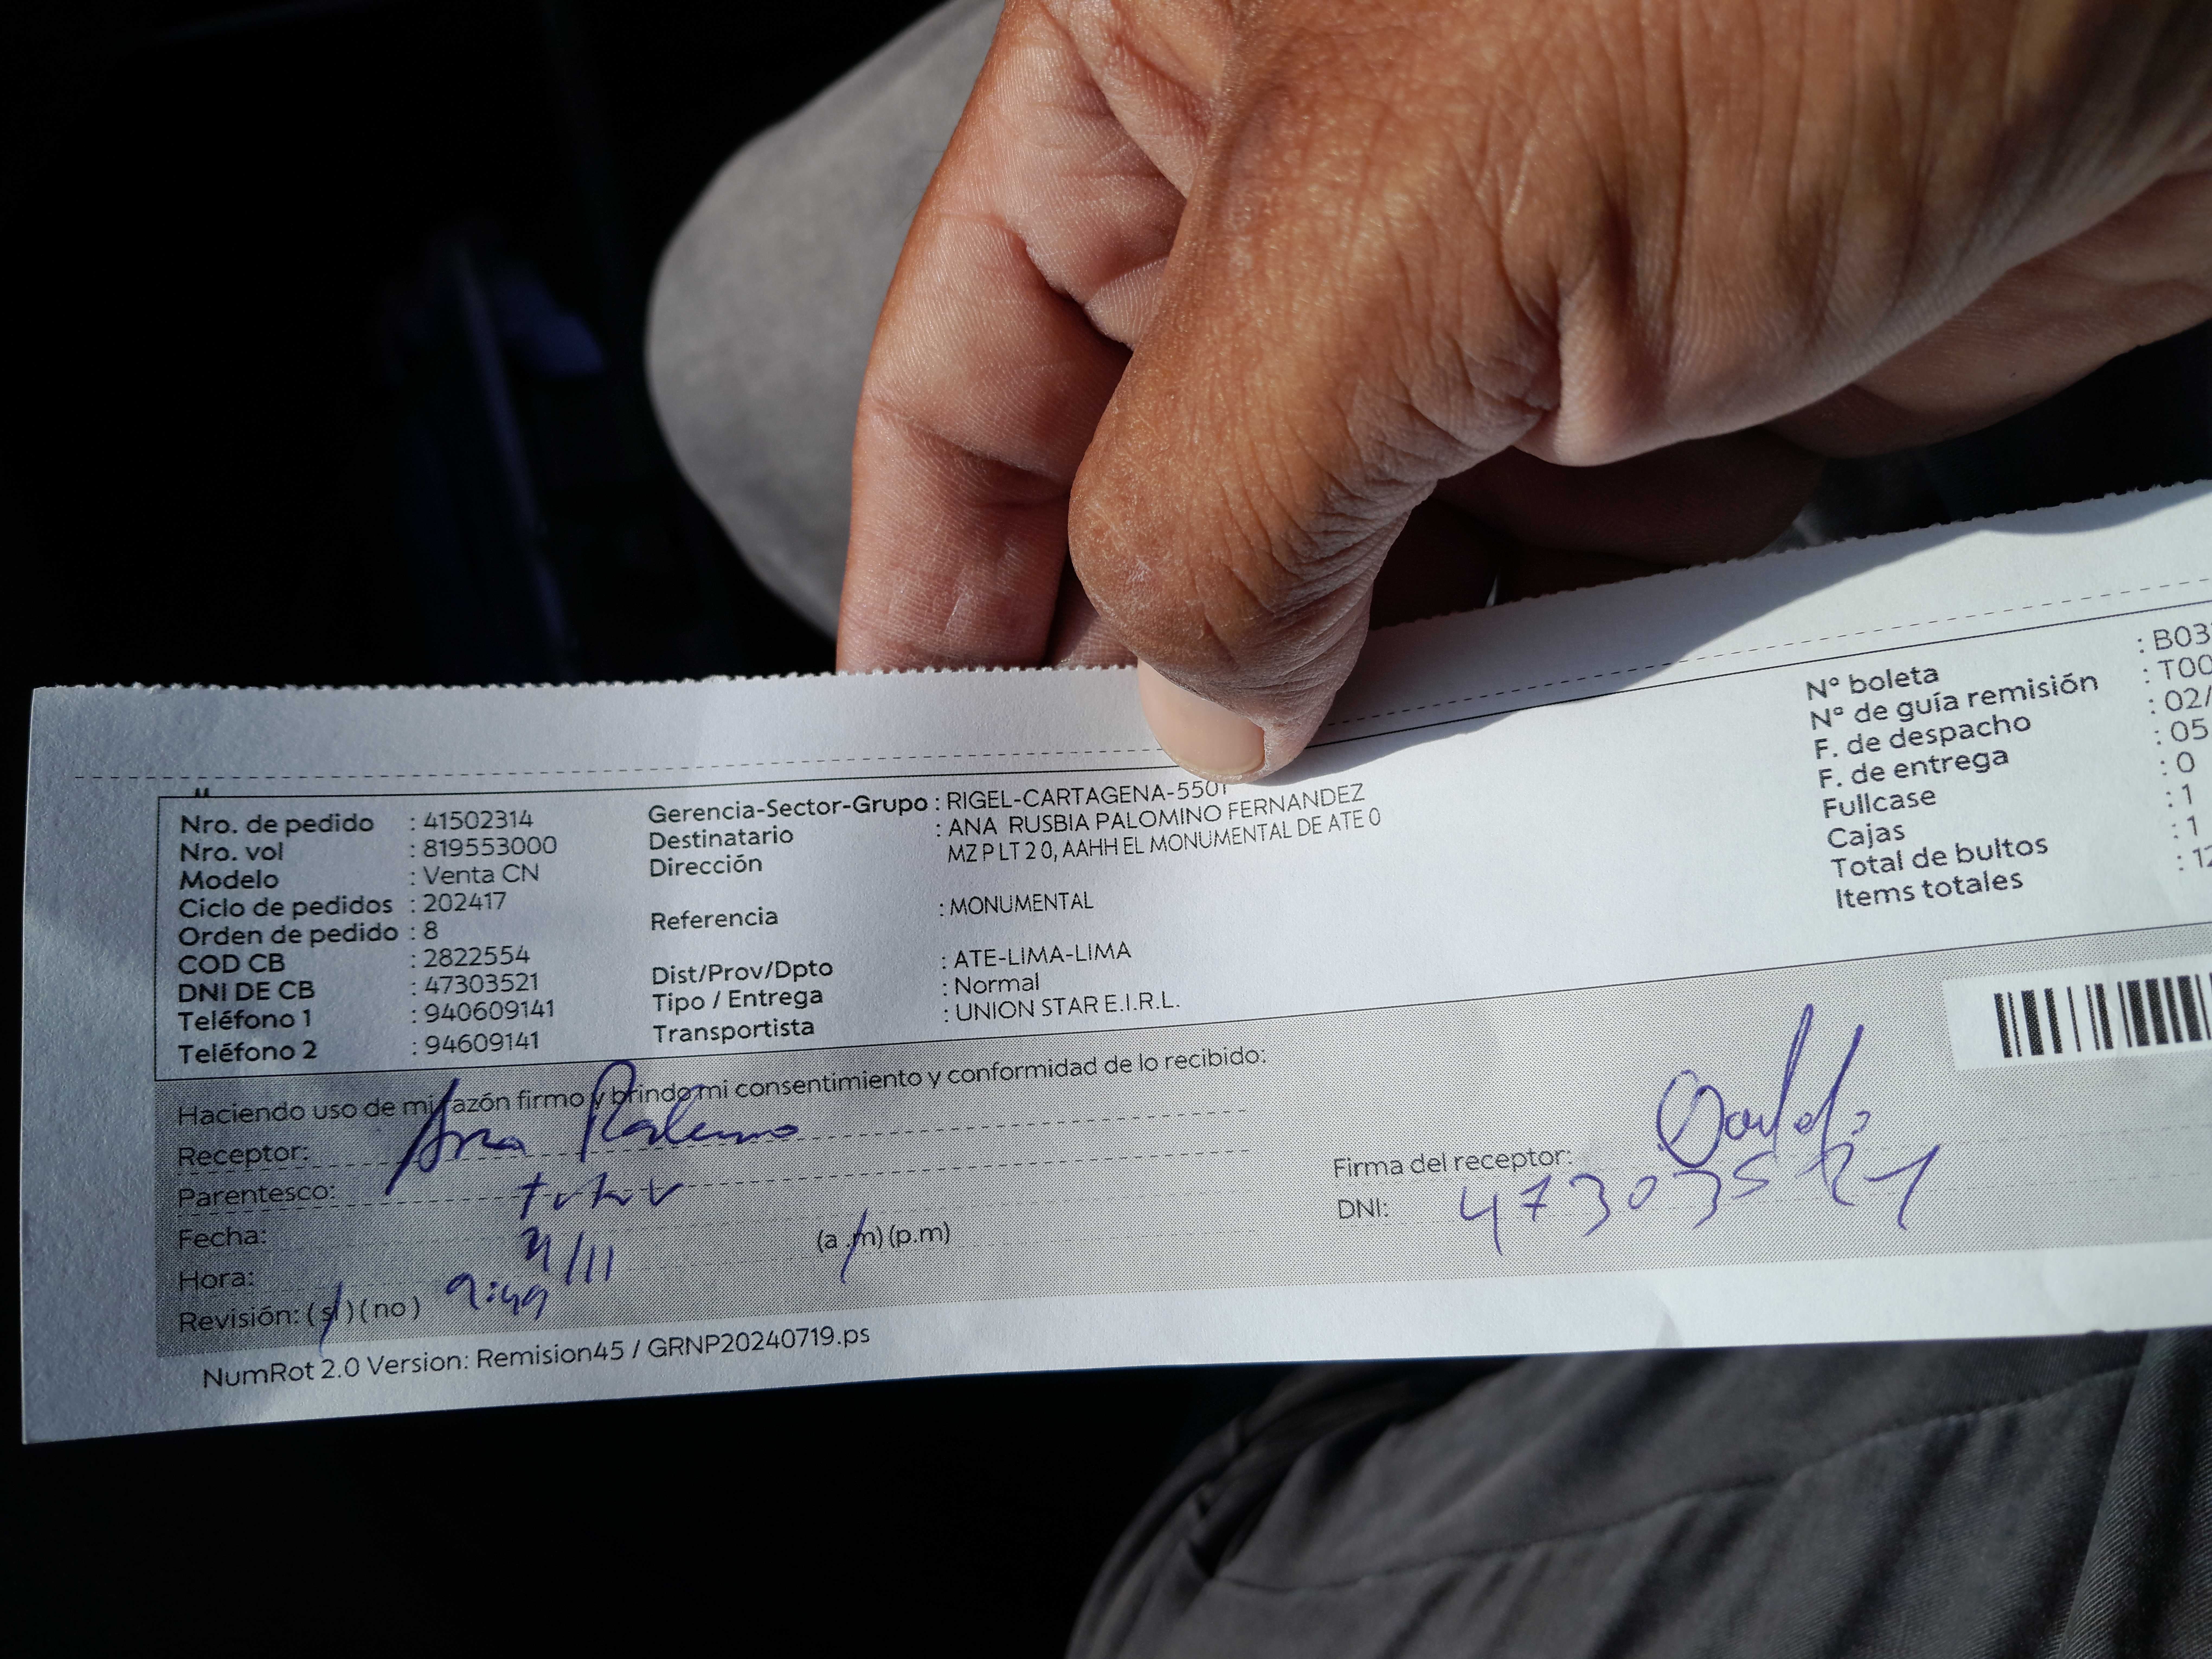 Nro. de pedido : 41502314
Nro. vol : 819553000
Modelo : Venta CN
Ciclo de pedidos : 202417
Orden de pedido : 8
COD CB : 2822554
DNI DE CB : 47303521
Teléfono 1 : 940609141
Teléfono 2 : 94609141
Gerencia-Sector-Grupo : RIGEL-CARTAGENA-5501
Destinatario : ANA RUSBIA PALOMINO FERNANDEZ
Dirección MZ P LT 2 0, AAHH EL MONUMENTAL DE ATE 0
Referencia : MONUMENTAL
Dist/Prov/Dpto : ATE-LIMA-LIMA
Tipo / Entrega : Normal
Transportista : UNION STAR E.I.R.L.
N° boleta : B03
N° de guía remisión : T00
F. de despacho : 02/
F. de entrega : 05
Fullcase : 0
Cajas : 1
Total de bultos : 1
Items totales : 12
Haciendo uso de mi razón firmo y brindo mi consentimiento y conformidad de lo recibido:
Receptor: Ana
Parentesco: titular
Fecha: /11
Hora: 9:49 (a.m) (p.m)
Revisión: (sí) (no)
Firma del receptor:
DNI: 47303521
NumRot 2.0 Version: Remision45 / GRNP20240719.ps